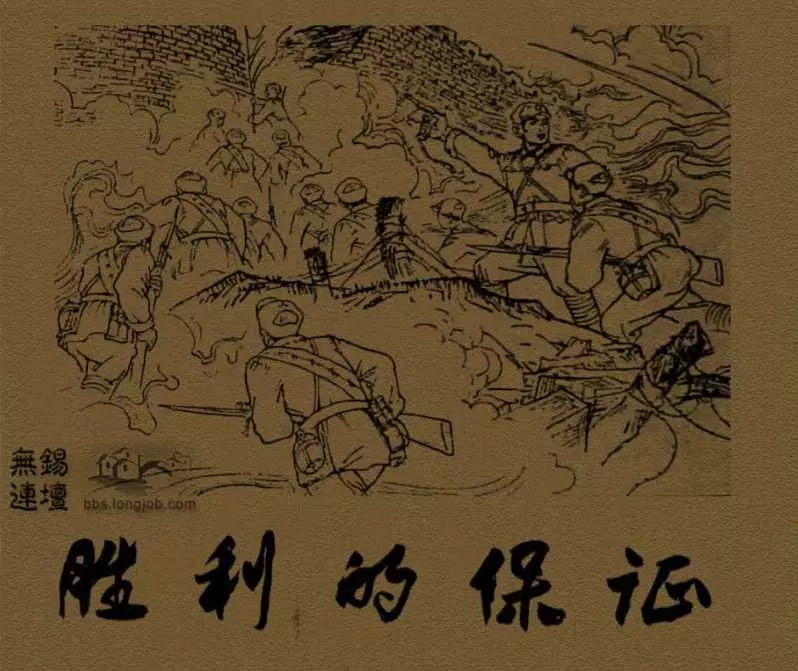 無錫
連壇
bbs.longjob.com
胜利的保证